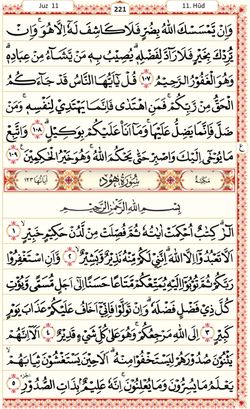 Juz 11 221 11. Hūd
وَاِنْ يَّمْسَسْكَ اللّٰهُ بِضُرٍّ فَلَا كَاشِفَ لَهٗٓ اِلَّا هُوَۚ وَاِنْ
يُّرِدْكَ بِخَيْرٍ فَلَا رَآدَّ لِفَضْلِهٖۗ يُصِيْبُ بِهٖ مَنْ يَّشَآءُ مِنْ عِبَادِهٖۗ
وَهُوَ الْغَفُوْرُ الرَّحِيْمُ ١٠٧ قُلْ يٰٓاَيُّهَا النَّاسُ قَدْ جَآءَكُمُ
الْحَقُّ مِنْ رَّبِّكُمْۚ فَمَنِ اهْتَدٰى فَاِنَّمَا يَهْتَدِيْ لِنَفْسِهٖۚ وَمَنْ
ضَلَّ فَاِنَّمَا يَضِلُّ عَلَيْهَاۚ وَمَآ اَنَا عَلَيْكُمْ بِوَكِيْلٍۗ ١٠٨ وَاتَّبِعْ
مَا يُوْحٰىٓ اِلَيْكَ وَاصْبِرْ حَتّٰى يَحْكُمَ اللّٰهُۚ وَهُوَ خَيْرُ الْحٰكِمِيْنَ ١٠٩
مكيّة ١١ سُوْرَةُ هُوْدٍ اٰيَاتُهَا ١٢٣
بِسْمِ اللّٰهِ الرَّحْمٰنِ الرَّحِيْمِ
الۤرٰ ۗ كِتٰبٌ اُحْكِمَتْ اٰيٰتُهٗ ثُمَّ فُصِّلَتْ مِنْ لَّدُنْ حَكِيْمٍ خَبِيْرٍۙ ١
اَلَّا تَعْبُدُوْٓا اِلَّا اللّٰهَۗ اِنَّنِيْ لَكُمْ مِّنْهُ نَذِيْرٌ وَّبَشِيْرٌۙ ٢ وَّاَنِ اسْتَغْفِرُوْا
رَبَّكُمْ ثُمَّ تُوْبُوْٓا اِلَيْهِ يُمَتِّعْكُمْ مَّتَاعًا حَسَنًا اِلٰٓى اَجَلٍ مُّسَمًّى وَّيُؤْتِ
كُلَّ ذِيْ فَضْلٍ فَضْلَهٗۗ وَاِنْ تَوَلَّوْا فَاِنِّيْٓ اَخَافُ عَلَيْكُمْ عَذَابَ يَوْمٍ
كَبِيْرٍ ٣ اِلَى اللّٰهِ مَرْجِعُكُمْۚ وَهُوَ عَلٰى كُلِّ شَيْءٍ قَدِيْرٌ ٤ اَلَآ اِنَّهُمْ
يَثْنُوْنَ صُدُوْرَهُمْ لِيَسْتَخْفُوْا مِنْهُۗ اَلَا حِيْنَ يَسْتَغْشُوْنَ ثِيَابَهُمْۙ
يَعْلَمُ مَا يُسِرُّوْنَ وَمَا يُعْلِنُوْنَۚ اِنَّهٗ عَلِيْمٌۢ بِذَاتِ الصُّدُوْرِ ٥